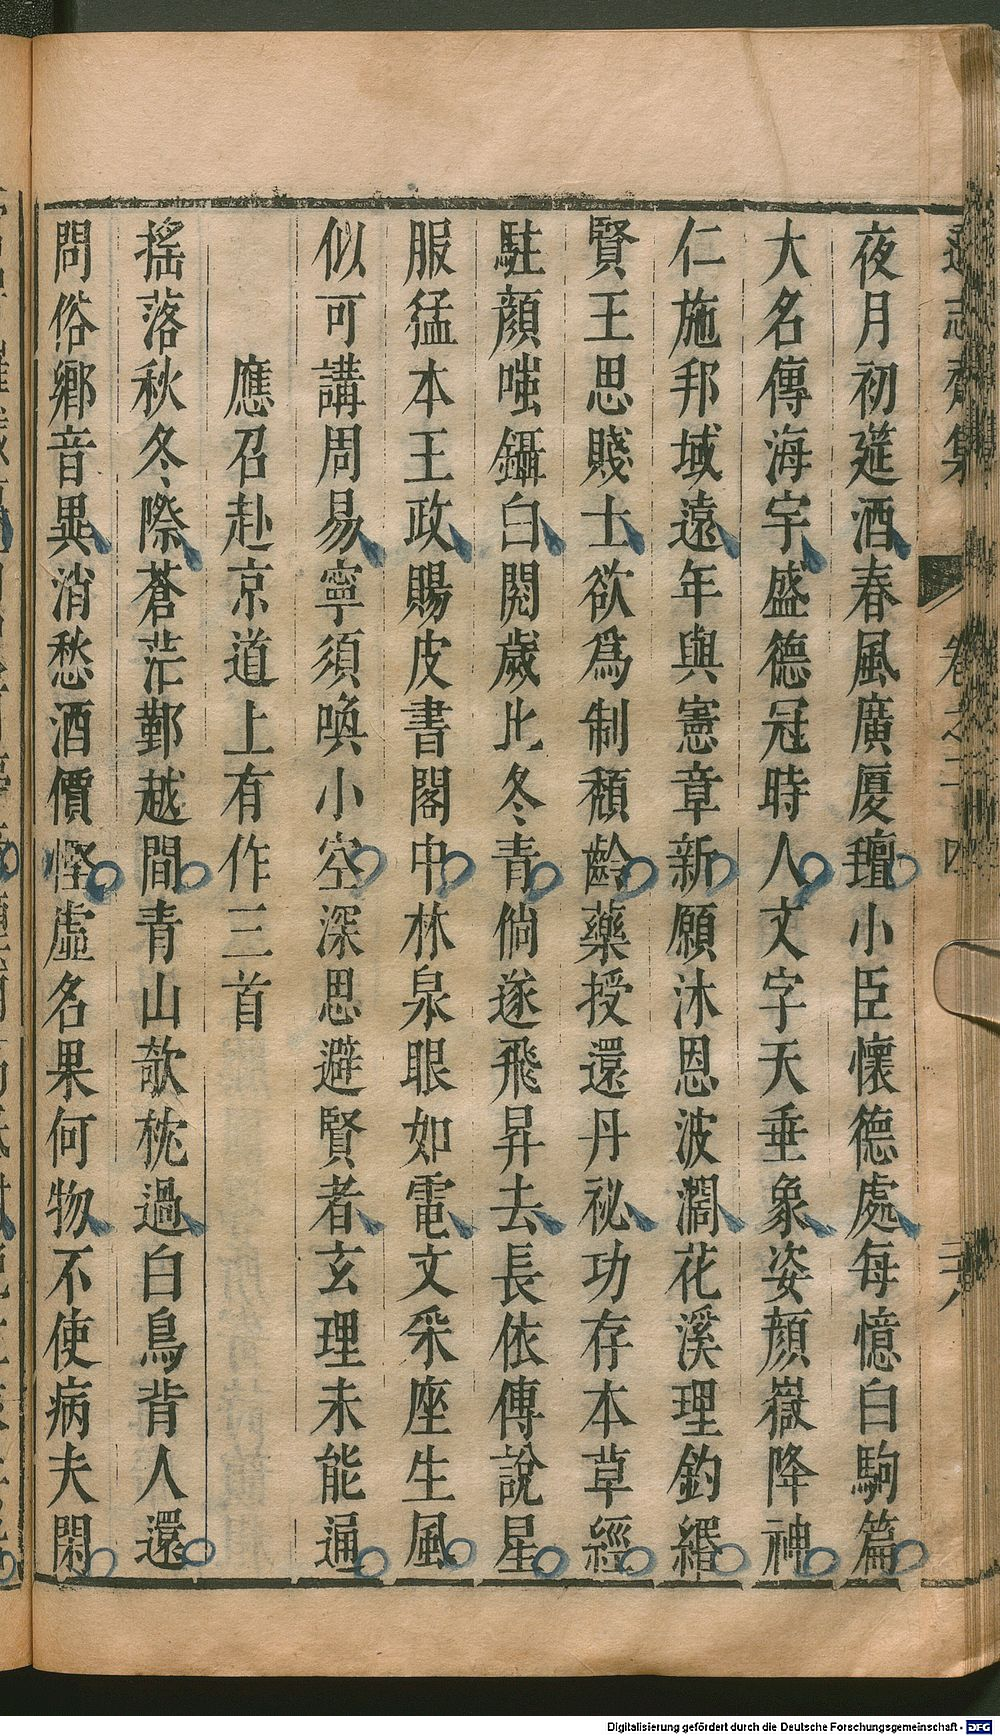 夜月初筵酒春風廣厦璮小臣懷德處每憶白駒篇
大名傳海宇盛德冠時人文字天垂象姿顔嶽降神
仁施邦域遠年與憲章新願沐恩波濶花溪理釣緡
賢王思賤士欲爲制頽齡藥授還丹祕功存本草經
駐顔嗤鑷白閱歲比冬青倘遂飛昇去長依傳說星
服猛本王政賜皮書閣中林泉眼如電文釆座生風
似可講周易寧須喚小空深思避賢者玄理未能通
應召赴京道上有作三首
搖落秋冬際蒼茫鄞越間青山欹枕過白鳥背人還
問俗鄉音異消愁酒價慳虛名果何物不使病夫閑
志齋集
卷之二十四
Digitalisierung gefördert durch die Deutsche Forschungsgemeinschaft - DFG